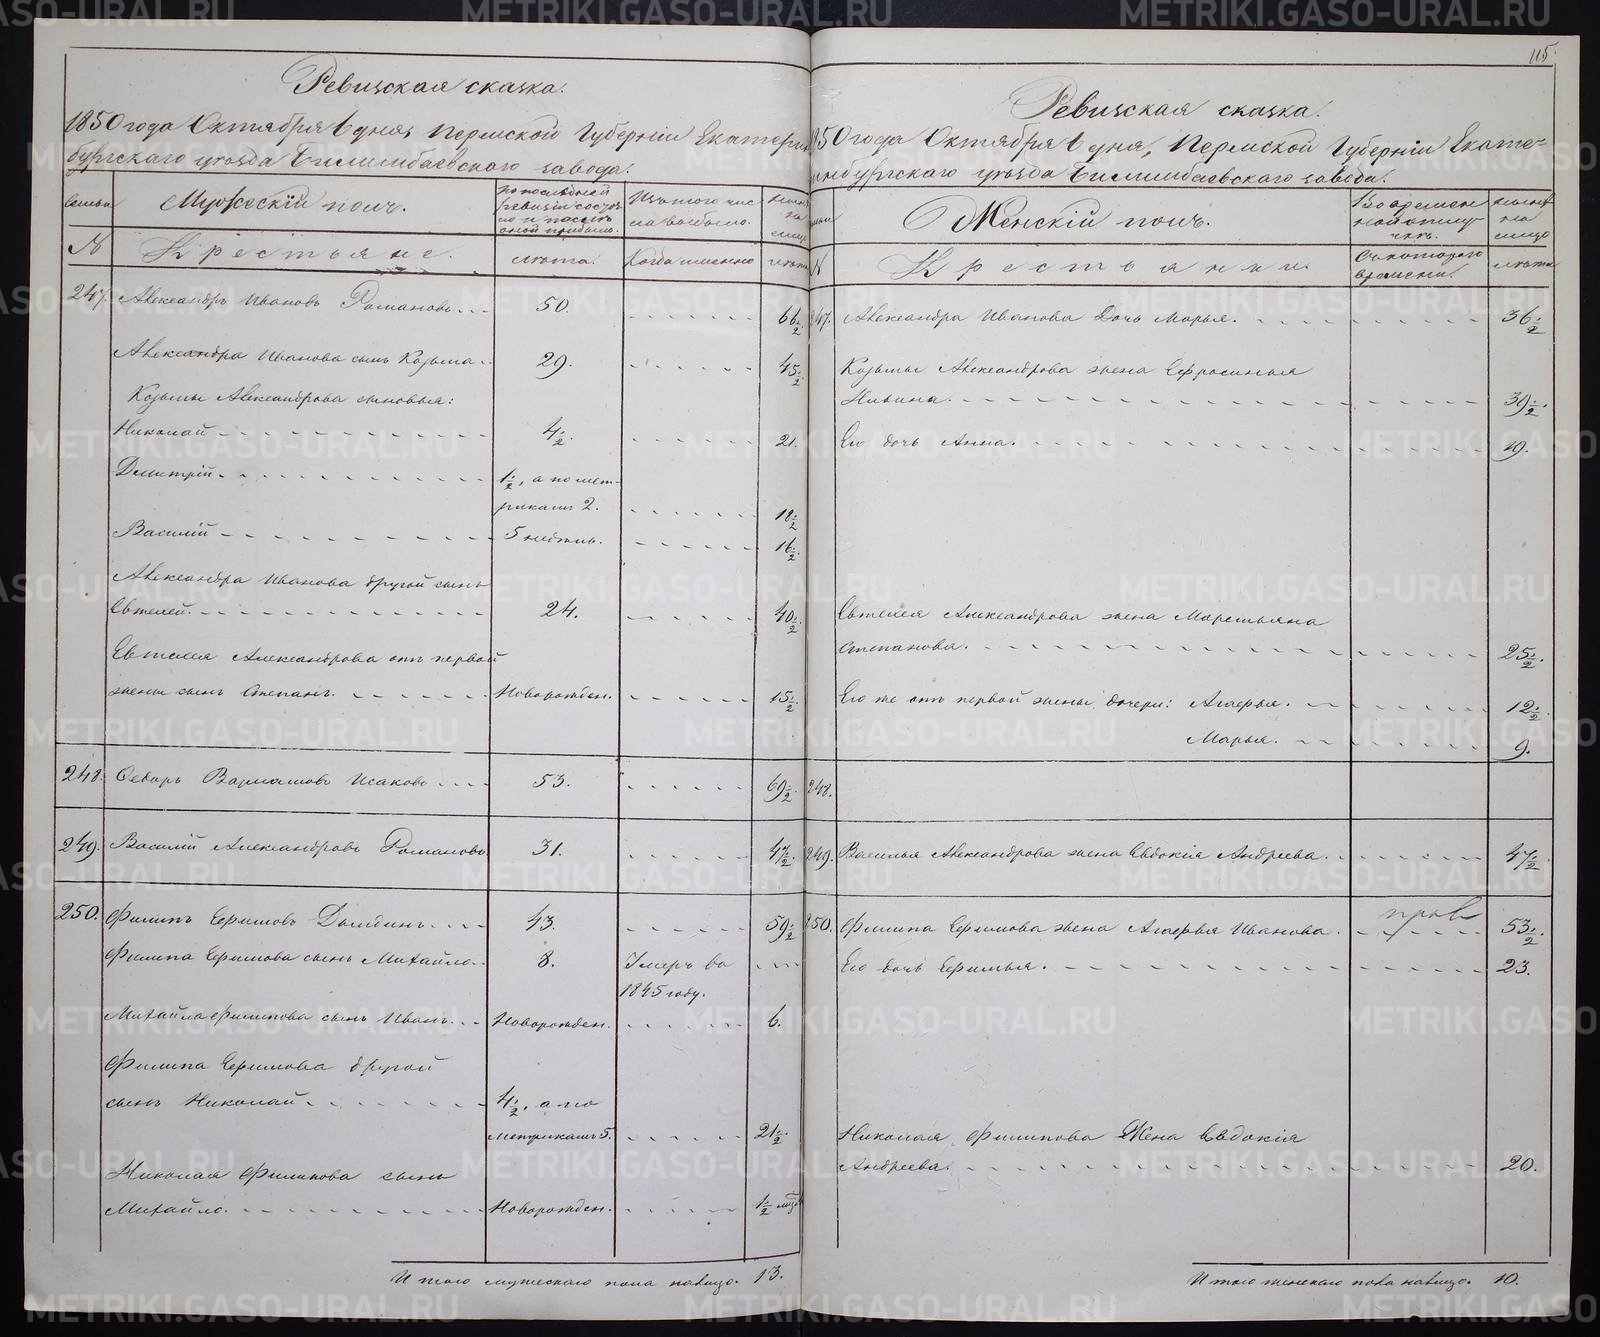 Ревизская сказка.
1850 года Октября 6 дня, Пермской Губернiи Екатерин
бургскаго уѣзда Билимбаевскаго завода.
семьи
Мужескiй полъ.
по последней
ревизiи состоя
ло и после
оной прибыло.
Изъ того чис
ла выбыло.
ныне
на
лицо
№
Крестьяне.
лѣта.
Когда именно
лѣта
247. Александръ Ивановъ Романовъ 50. 66 1/2
Александра Иванова сынъ Козьма 29. 45 1/2
Козьмы Александрова сыновья:
Николай 4 1/2. 21.
Дмитрiй 1 1/2, а по мет-
рикамъ 2. 18 1/2
Василiй 5 недѣль. 16 1/2
Александра Иванова другой сынъ
Евтелей. 24. 40 1/2
Евтелея Александрова отъ первой
жены сынъ Степанъ. Новорожден. 15 1/2
248. Федоръ Варламовъ Исаковъ 53. 69 1/2
249. Василiй Александровъ Романовъ 31. 47 1/2.
250. Филипъ Ефимовъ Дылдинъ 43. 59 1/2
Филипа Ефимова сынъ Михайло 8. Умеръ въ
1845 году.
Михайла Филипова сынъ Иванъ Новорожден. 6.
Филипа Ефимова другой
сынъ Николай 4 1/2, а по
метрикамъ 5. 21 1/2
Николая Филипова сынъ
Михайло. Новорожден. 1 1/2
Итого мужескаго пола налицо. 13.
115.
Ревизская сказка.
1850 года Октября 6 дня, Пермской Губернiи Екате-
ринбургскаго уѣзда Билимбаевскаго завода.
Женскiй полъ.
Во времен
ной отлу
чкѣ.
ныне
на
лицо
№
Крестьянки.
Съ котораго
времени.
лѣта
247. Александра Иванова Дочь Марья. 36 1/2
Козьмы Александрова жена Ефросинья
Ильина. 39 1/2.
Его дочь Анна. 19.
Евтелея Александрова жена Маремьяна
Степанова. 25 1/2.
Его же отъ первой жены дочери: Агафья. 12 1/2
Марья. 9.
248.
249. Василья Александрова жена Евдокiя Андреева. 47 1/2
250. Филипа Ефимова жена Агафья Иванова. 53 1/2.
Его дочь Ефимья. 23.
Николая Филипова Жена Евдокiя
Андреева. 20.
Итого женскаго пола налицо. 10.
METRIKI.GASO-URAL.RU